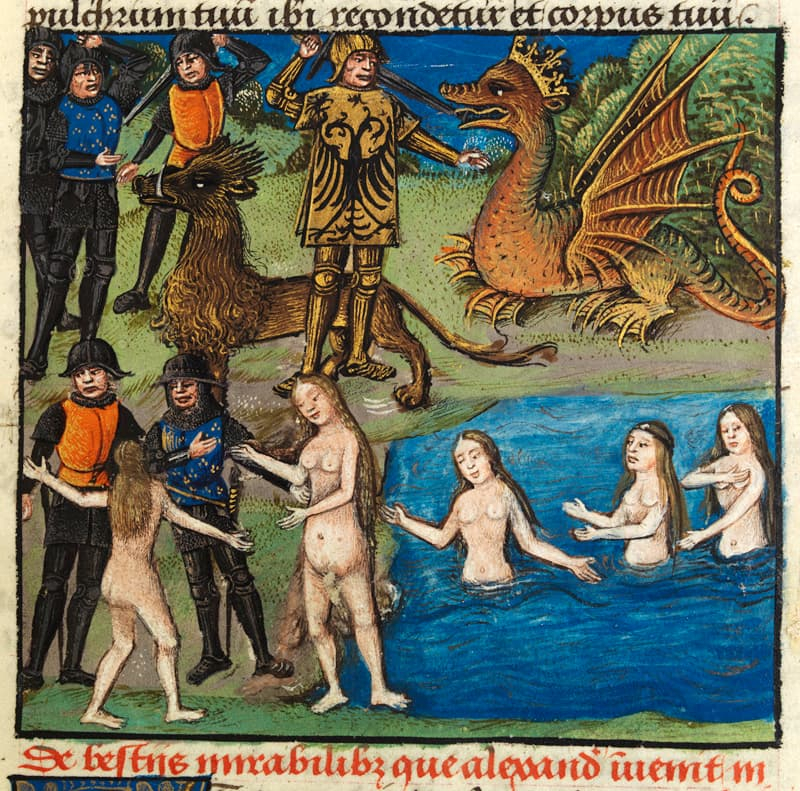 pulchrum tuū ibi recondetur et corpus tuū.
De bestijs mirabilibꝫ que alexand᷑ īuenit in